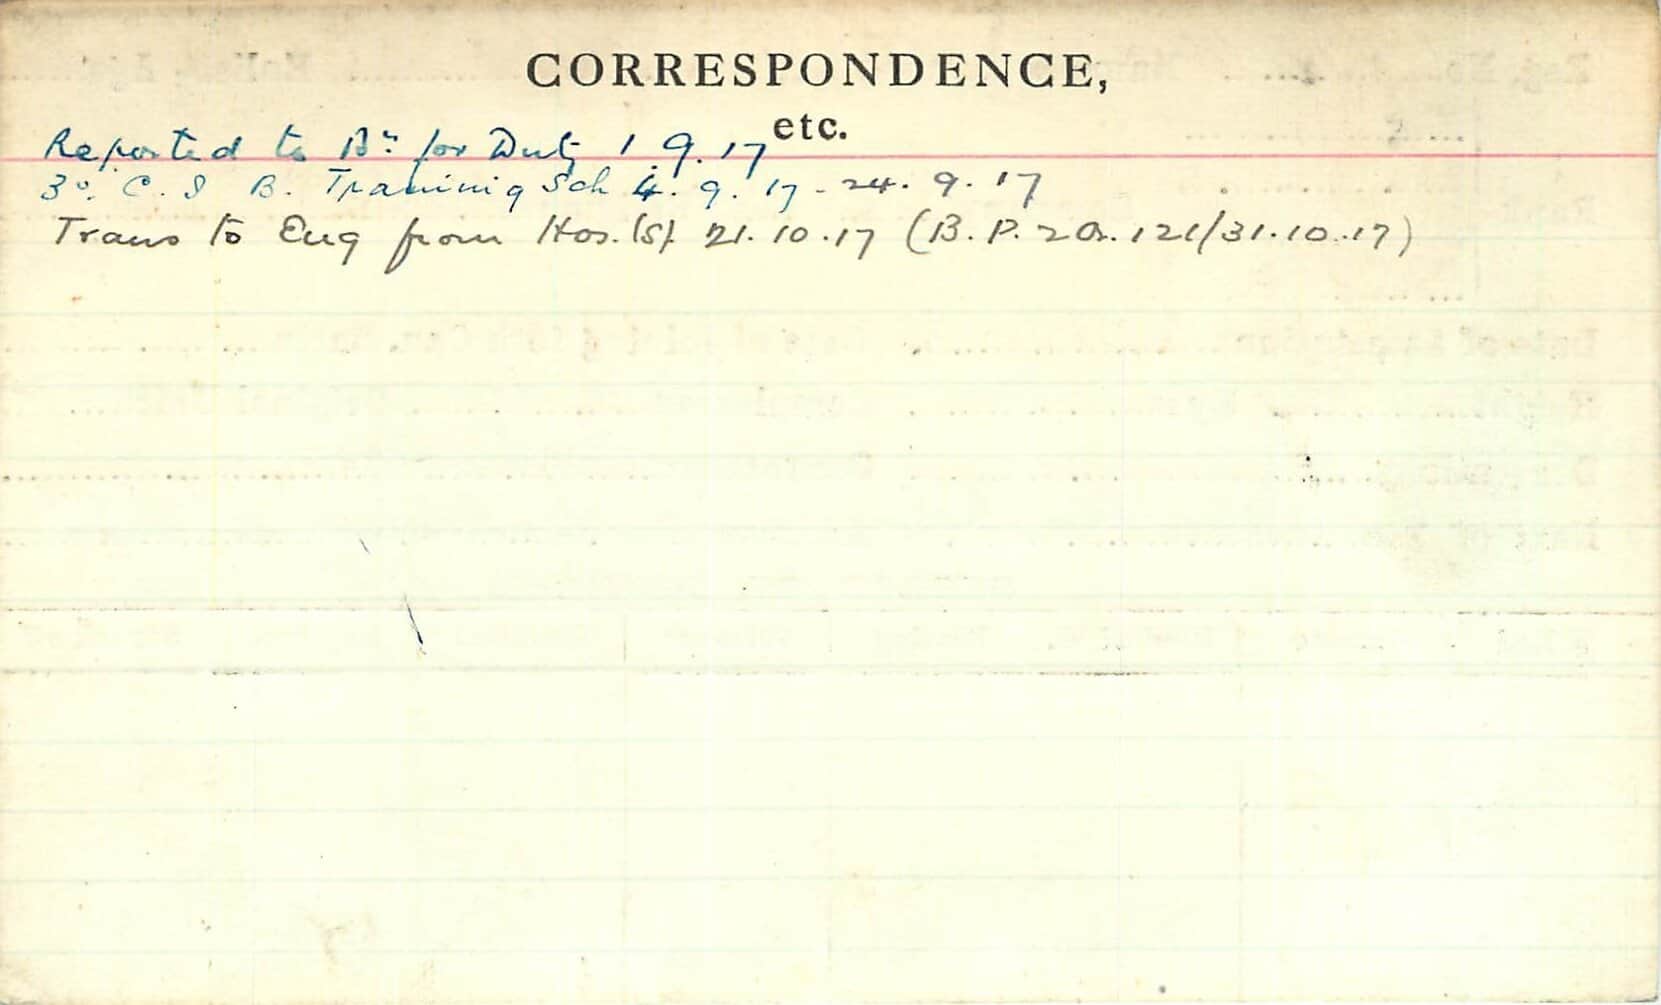 CORRESPONDENCE,
etc.
Reported to Bn for Duty 1.9.17
C. S B. Training Sch 4.9.17 - 24.9.17
Trans to Eng from Hos.(s). 21.10.17 (B.P. 121/31.10.17)